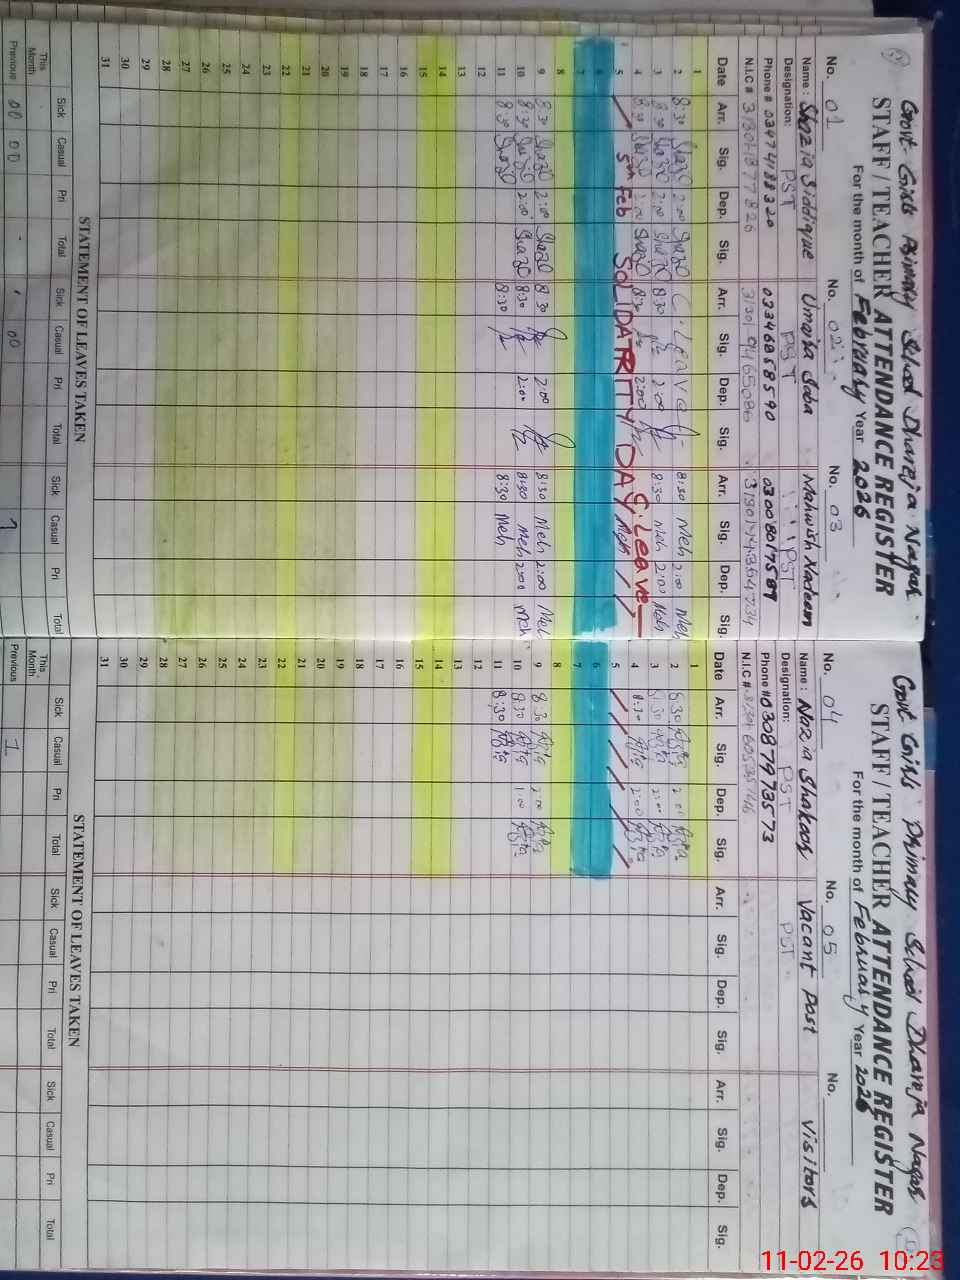 Govt. Girls Primary School Dhareja Nagar
STAFF / TEACHER ATTENDANCE REGISTER
For the month of February Year 2026
No. 01 No. 02 No. 03
Name : Shazia Siddique Umaira Saba Mahwish Nadeem
Designation: PST PST PST
Phone # 03474188320 03346858590 03008017587
N.I.C #
Date Arr. Sig. Dep. Sig. Arr. Sig. Dep. Sig. Arr. Sig. Dep. Sig.
1
2 8:30 Shazo 2:00 Shazo C. Leave 8:30 Meh 2:00 Meh
3 8:30 Shazo 2:00 Shazo 8:30 2:00 8:30 Meh 2:00 Meh
4 8:30 Shazo 2:00 Shazo 8:30 2:00 C. Leave
5 5th Feb SOLIDATRITY DAY
6
7
8
9 8:30 Shazo 2:00 Shazo 8:30 2:00 8:30 Meh 2:00 Meh
10 8:30 Shazo 2:00 Shazo 8:30 2:00 8:30 Meh 2:00 Meh
11 8:30 Shazo 8:30 8:30 Meh
12
13
14
15
16
17
18
19
20
21
22
23
24
25
26
27
28
29
30
31
STATEMENT OF LEAVES TAKEN
Sick Casual Pri Total Sick Casual Pri Total Sick Casual Pri Total
This Month
Previous 00 00 - 00
Govt Girls Primary School Dhareja Nagar
STAFF / TEACHER ATTENDANCE REGISTER
For the month of February Year 2026
No. 04 No. 05 No.
Name : Nazia Shakoor Vacant Post Visitors
Designation: PST PST
Phone # 03087973573
N.I.C #
Date Arr. Sig. Dep. Sig. Arr. Sig. Dep. Sig. Arr. Sig. Dep. Sig.
1
2 8:30 2:00
3 8:30 2:00
4 8:30 2:00
5
6
7
8
9 8:30 2:00
10 8:30 1:00
11 8:30
12
13
14
15
16
17
18
19
20
21
22
23
24
25
26
27
28
29
30
31
STATEMENT OF LEAVES TAKEN
Sick Casual Pri Total Sick Casual Pri Total Sick Casual Pri Total
This Month
Previous 1
11-02-26 10:23